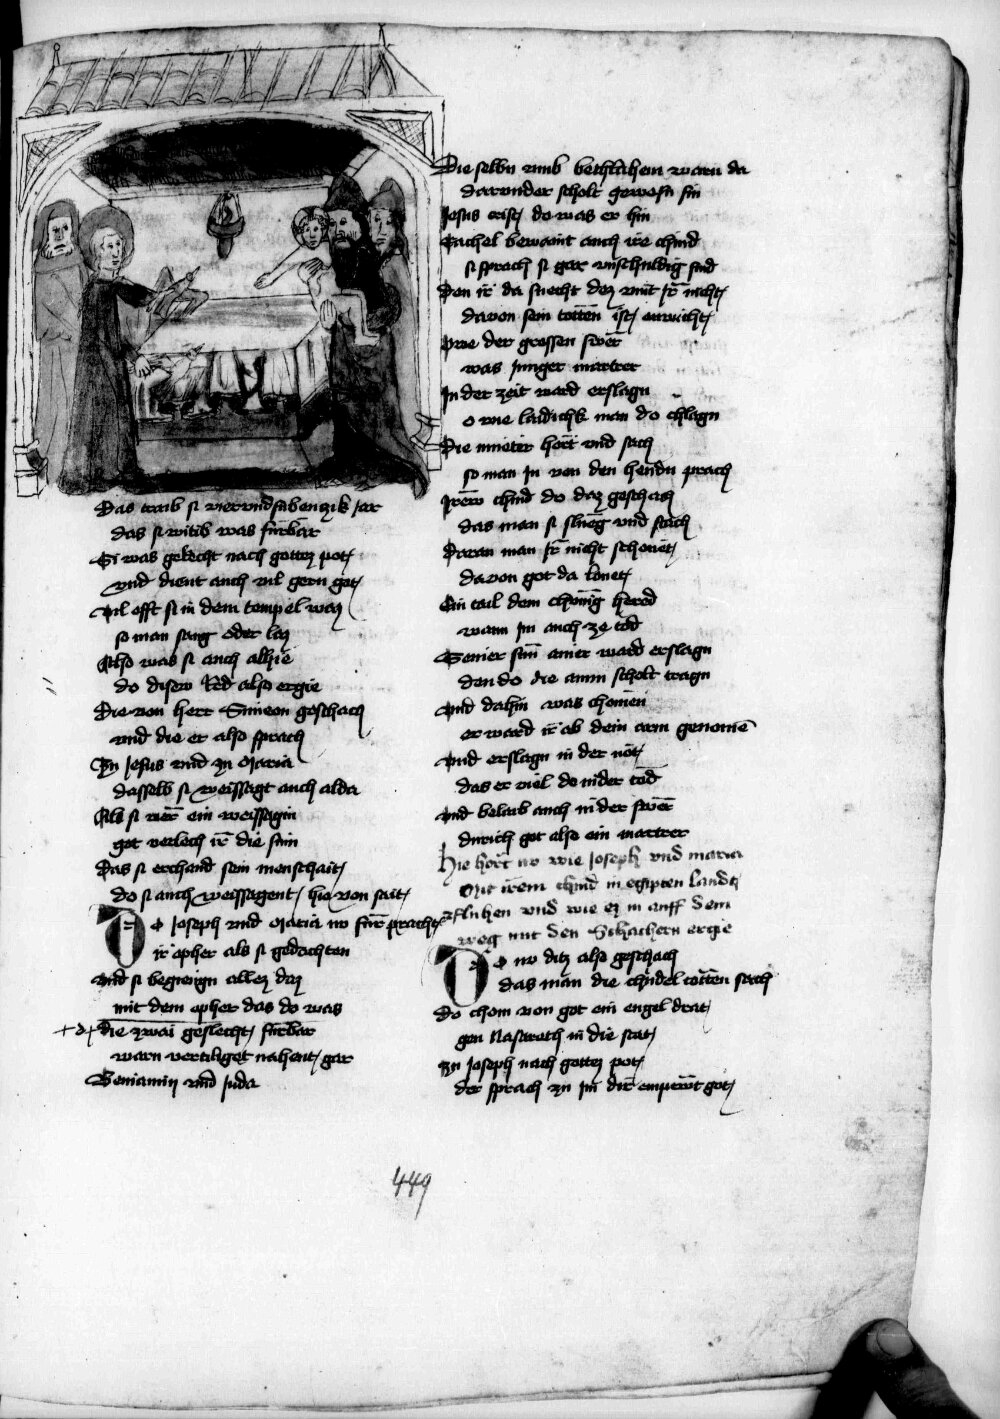 Das traib si vierundsubenczik jar
das si witib was fürbar
Si was gerecht nach gottez pot
vnd dient auch vil gern got
Vil offt si in dem tempel waz
so man sang oder laz
Also was si auch alhie
do diserv Red also ergie
Die von herr Simeon geschach
vnd die er also sprach
Zu Jesus vnd zu Maria
dasselb si weissagt auch alda
Als si wer ein weissagin
got verlech ir die sin
Das si erchand sein menschait
do si auch weissagent hie von sait
Do Joseph vnd Maria nv für pracht
ir opher als si gedachten
Vnd si begiengn allez daz
mit dem opher das do was
die zwai geslecht fürbar
warn vertiliget nahent gar
Beniamin vnd Juda
Die selbn vmb bethlahem warn da
darvnder scholt gewesn sin
Jesus crist do was er hin
Rachel bewaint auch ire chind
si sprach si gar vnschuldig sind
Den ir da suecht dez vint ir nicht
davon sein tötten ist enwicht
Owe der grossen swer
was junger martrer
In der zeit ward erslagn
o wie laidichk man do chlagn
Die mueter hort vnd sach
so man in von den hendn prach
Irew chind do daz geschach
das man si slueg vnd stach
Daran man ir nicht schonet
davon got da lonet
Ein tail dem chönig herod
wann im auch ze tod
Seiner sün ainer ward erslagn
den do die amm scholt tragn
Vnd dahin was chomen
er ward ir ab dem arm genomē
Vnd erslagn in der not
das er viel do nider tod
Vnd belaib auch in der swer
durich got also ein martrer
Hie hört nv wie Joseph vnd maria
Mit irem chind in egipten landt
fluhen vnd wie ez in auff dem
weg mit den Schachern ergie
Do nv ditz also geschach
das man die chindel tötten sach
Do chom von got ein engel drat
gen Nasareth in die stat
Zu Joseph nach gottez pot
der sprach zu im dir enpewt got
449